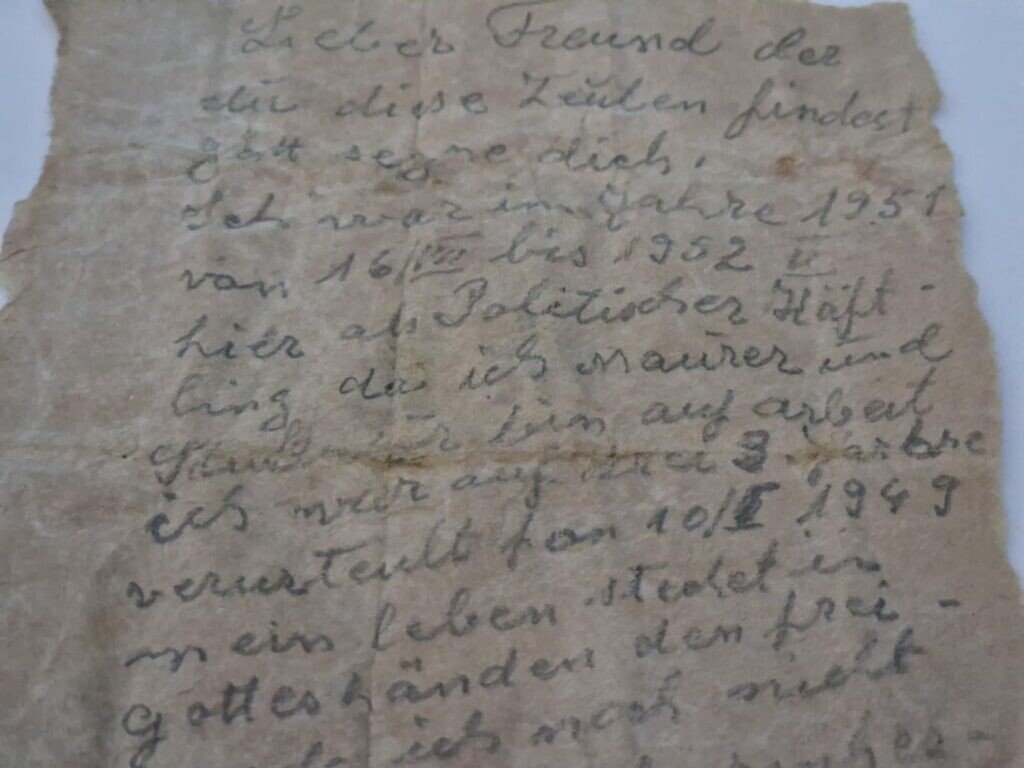 Lieber Freund der
du diese Zeulen findest
gott segne dich.
Ich war im Jahre 1951
von 16/VII bis 1952 II
hier als Politischer Häft-
ling da ich Maurer und
bin auf arbeit
ich war auf drei 3 Jahre
verurteult fon 10/II 1949
mein leben stehet in
gotteshänden den frei-
ich noch nicht